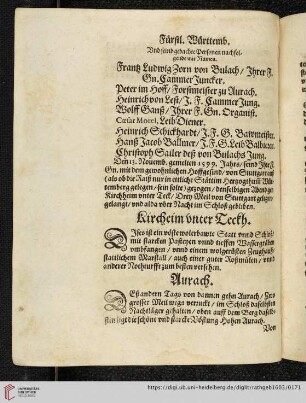 Fürstl. Württemb.
Vnd seind gedachte Personen nachfol-
gende mit Namen.
Frantz Ludwig Zorn von Bulach / Ihrer F.
Gn. Cammer Juncker.
Peter im Hoff / Forstmeister zu Aurach.
Heinrich von Lest / J. F. Cammer Jung.
Wolff Ganß / Ihrer F. Gn. Organist.
Cæsar Morel, Leib Diener.
Heinrich Schickhardt / J. F. G. Bawmeister.
Hanß Jacob Ballmer / J. F. G. Leib Balbierer.
Christoph Sailer deß von Bulachs Jung.
Den 13. Nouemb. gemelten 1599. Jahrs / seind Ihre F.
Gn. mit dem gewohnlichen Hoffgesind / von Stuttgart auß
( als ob die Raiß nur in etliche Stätt im Hertzogthumb Wür-
temberg gelegen / sein solte) gezogen / denselbigen Abend ge
Kirchheim vnter Teck / Drey Meil von Stuttgart gelegen /
gelangt / vnd alda vber Nacht im Schloß geblieben.
Kircheim vnter Teckh.
Dises ist ein vöste wolerbawte Statt vnd Schloß /
mit starcken Pasteyen vnnd tieffen Wassergräben
vmbfangen / vnnd einem wolgerüsten Zeughauß /
stattlichem Marstall / auch einer guter Roßmülen / vnd
anderer Notturfft zum besten versehen.
Aurach.
Deß andern Tags von dannen gehn Aurach / Zwo
grosser Meil wegs verruckt / im Schloß daselbsten
Nachtläger gehalten / oben auff dem Berg daselb-
sten ligt die schöne vnd starcke Vöstung Hohen Aurach.
Von
http://digi.ub.uni-heidelberg.de/diglit/rathgeb1603/0171